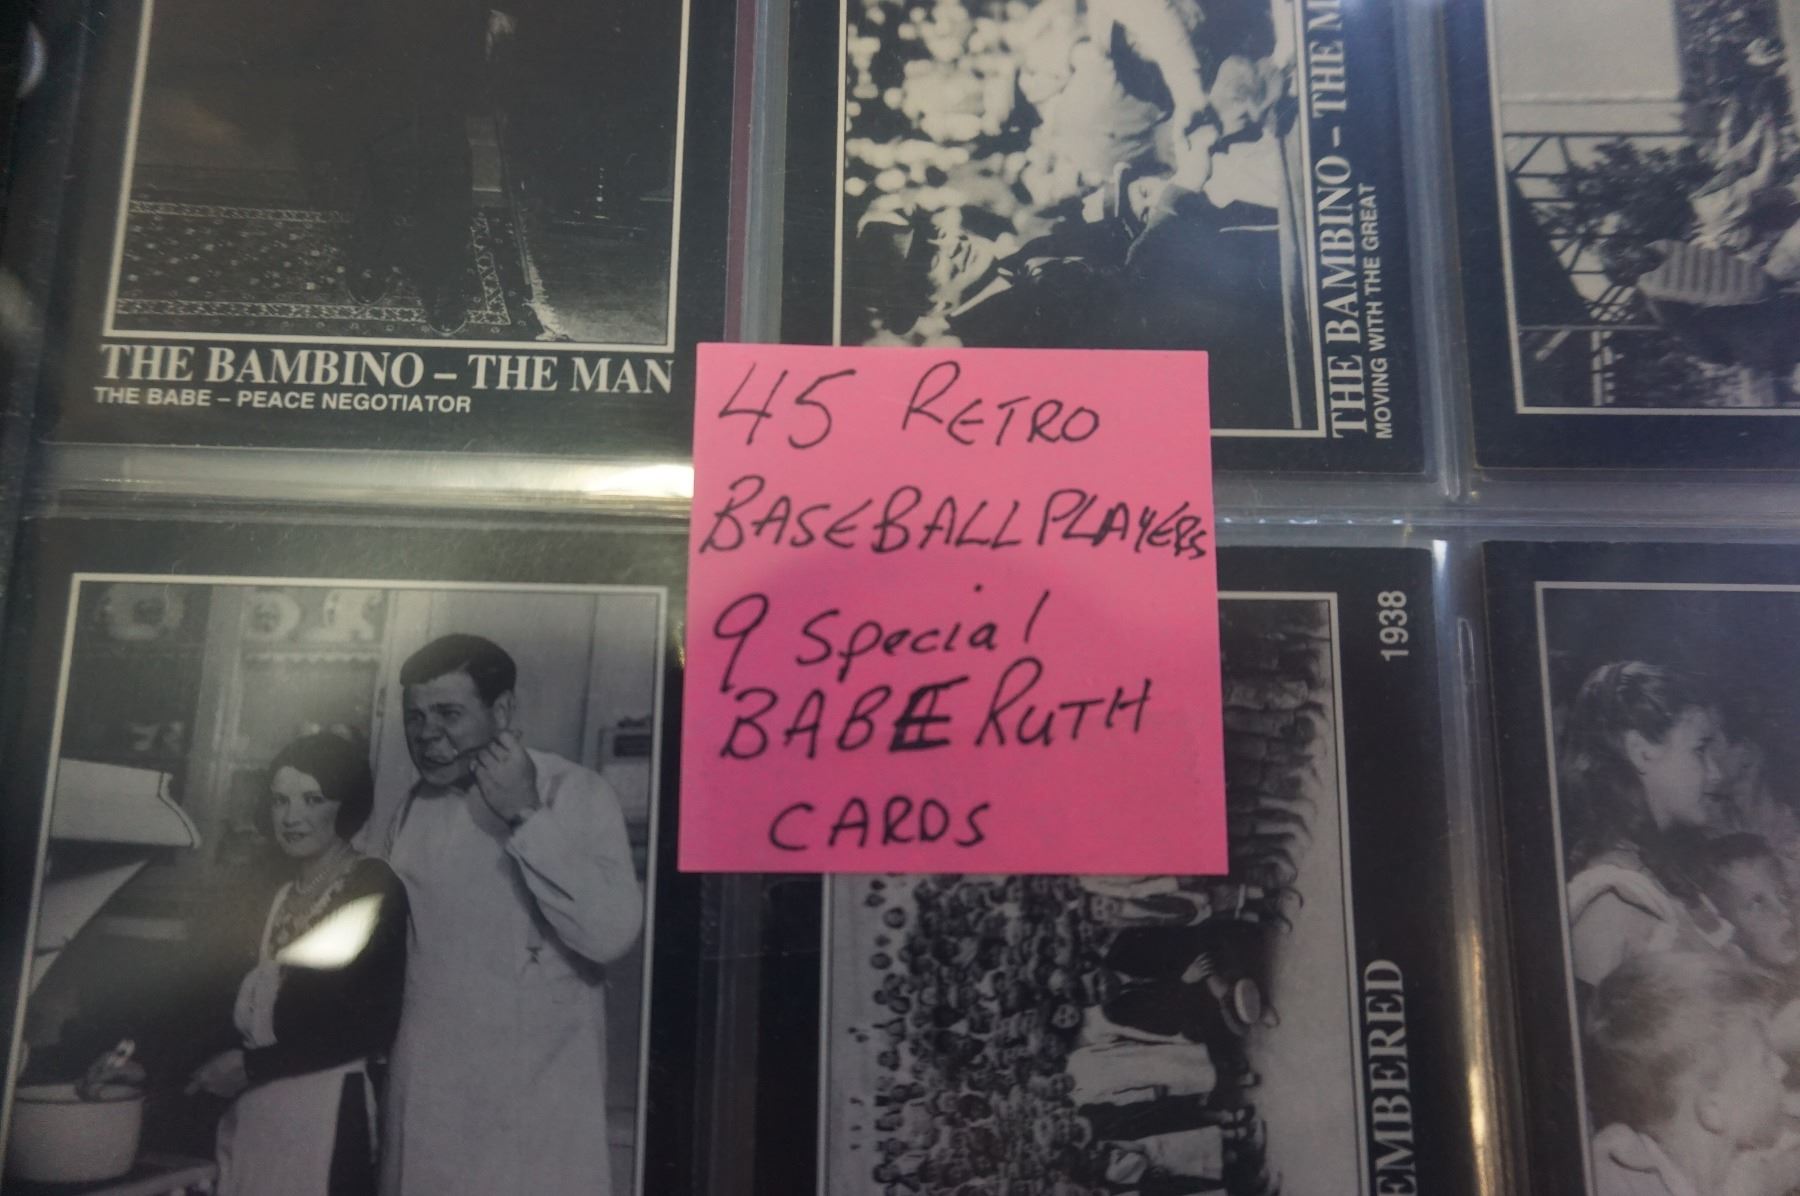 THE BAMBINO – THE MAN
THE BABE – PEACE NEGOTIATOR
THE BAMBINO – THE M
MOVING WITH THE GREAT
45 RETRO
BASEBALL PLAYERS
9 Special
BABE RUTH
CARDS
1938
EMBERED